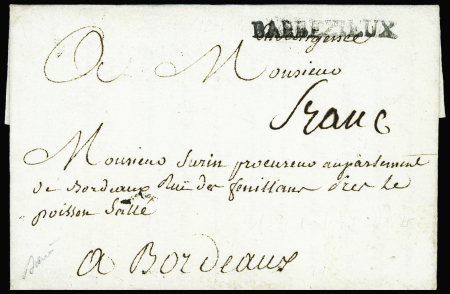 BARBEZIEUX
A Monsieur
franc
Monsieur Surin procureur auparlement
de Bordeaux Rue des feuillans pres le
poisson Sallé
A Bordeaux